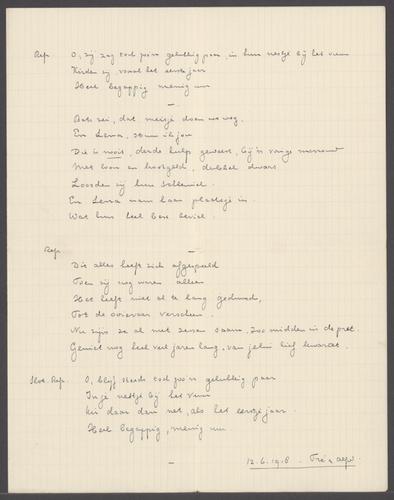 Rep. O, zij zag toch zoo'n gelukkig paar, in hun nestje bij het vuur
Kirden zij vooral het eerste jaar
Heel begappig menig uur
—
Bats zei, dat meisje doen we weg.
En Lena,
Die is nooit, derde hulp geweest, bij'n vorige mevrouw
Met loon en kostgeld, dubbel dwars
Loosden zij hun
En Lena nam haar plaatsje in.
Wat hun heel best beviel.
Rep. —
Dit alles heeft zich afgespeeld
Toen zij nog waren alleen
Het heeft niet al te lang geduurd,
Tot de ooievaar verscheen.
Nu zijn ze al met zessen saam, zoo midden in de pret.
Geniet nog heel veel jaren lang, van jelui lief kwartet.
Slot. Rep. O, blijf steeds toch zoo'n gelukkig paar
In je nestje bij het vuur
Kir daar dan net, als het eerste jaar.
Heel begappig, menig uur
—
12.6.1918.